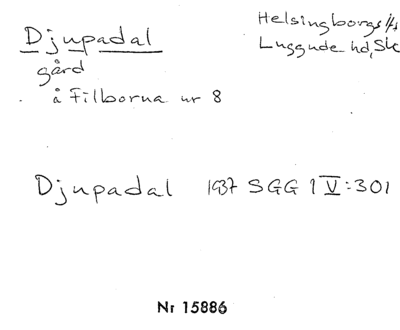 Djupadal
Helsingborgs l/s
gård
Luggude hd, Sk
å Filborna nr 8
Djupadal 1937 SGG 1 IV:301
Nr 15886